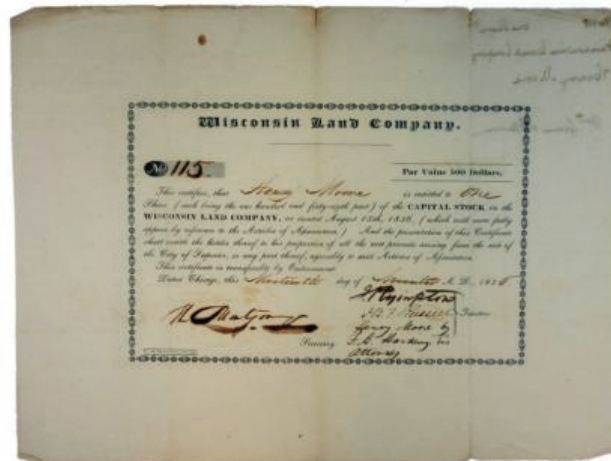 Wisconsin Land Company.
No 115
Par Value 500 Dollars.
This certifies, that Henry Moore is entitled to One
Share (each being the one hundred and forty-sixth part) of the CAPITAL STOCK in the
WISCONSIN LAND COMPANY, as created August 15th, 1836, (which will more fully
appear by reference to the Articles of Association.) And the presentation of this Certificate
shall entitle the holder thereof to his proportion of all the nett proceeds arising from the sale of
the City of Superior, or any part thereof, agreeably to said Articles of Association.
This certificate is transferable by Endorsement.
Dated Chicago, this day of A. D., 1836
Trustees
Henry Moore by
Secretary.
Attorney